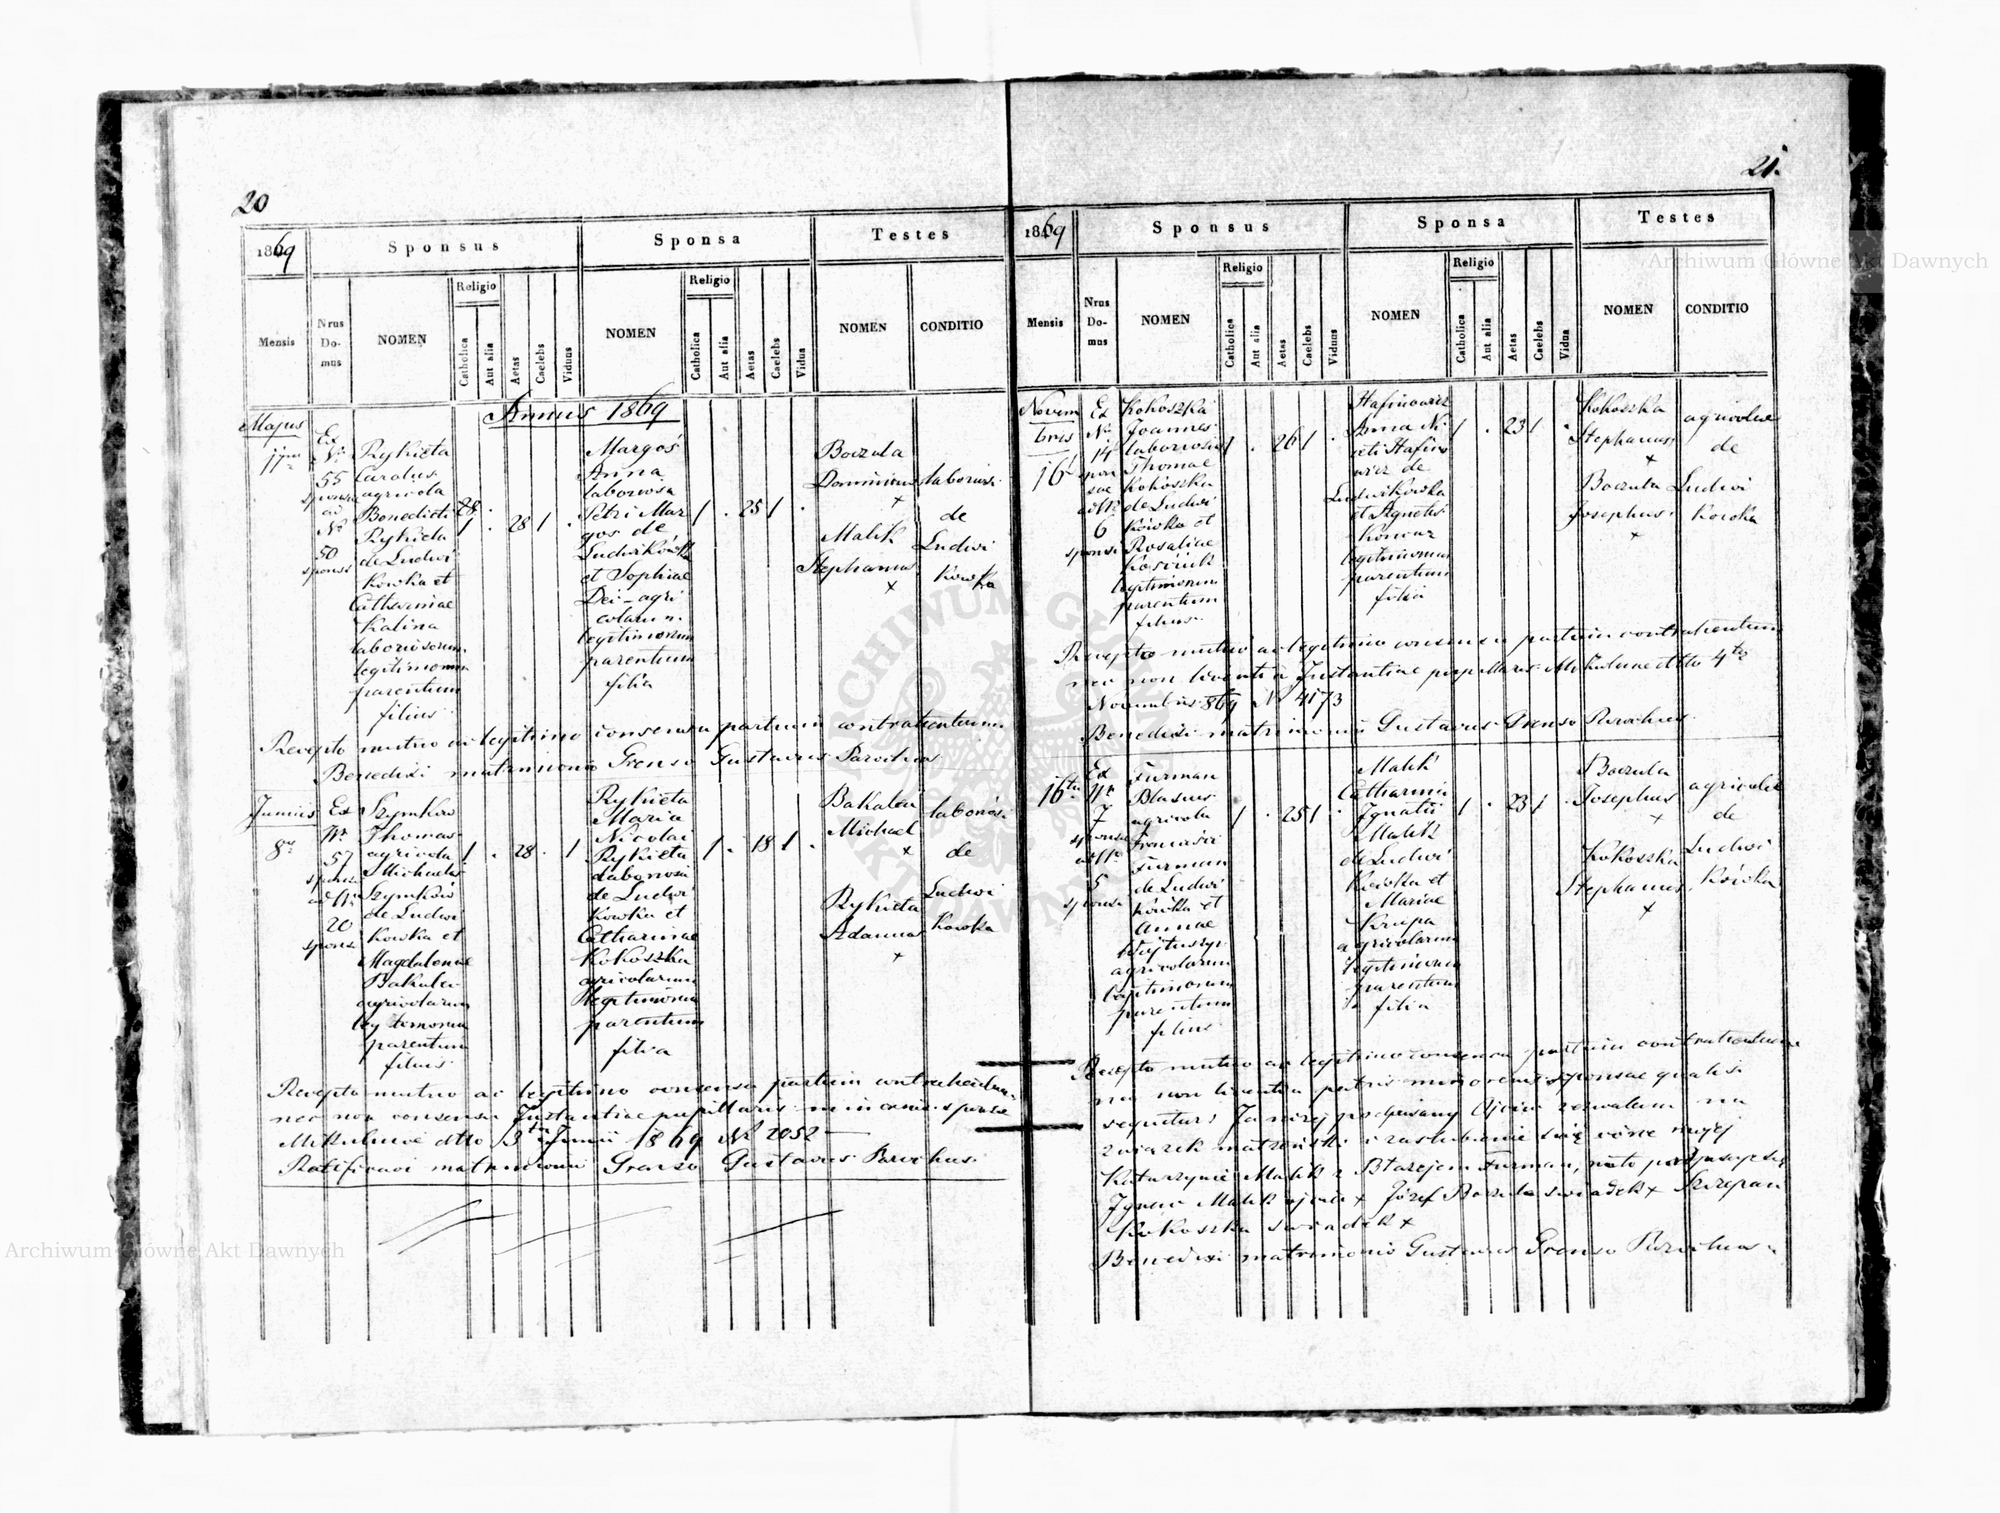 20
1869
Sponsus
Sponsa
Testes
Mensis
Nrus Do-mus
NOMEN
Religio
Catholica
Aut alia
Aetas
Caelebs
Viduus
NOMEN
Religio
Catholica
Aut alia
Aetas
Caelebs
Vidua
NOMEN
CONDITIO
Annus 1869
Majus
Ex
Nr
55
sponsa
ad
Nr
50
sponsi
Rykieta
Carolus
agricola
Benedicti
Rykieta
de Ludwi
kowka et
Catharinae
Kalina
laboriosorum
legitimorum
parentum
filius
28
1 . 28 1 .
Margos
Anna
laboriosa
Petri Mar
gos de
Ludwikówk
et Sophiae
Dei - agri
colarum
legitimorum
parentum
filia
1 . 25 1 .
Boczula
Dominicus
+
Malik
Stephanus
+
laboriosi
de
Ludwi
kowka
Recepto mutuo ac legitimo consensu partium contrahentium
Benedixi matrimonio Grenso Gustavus Parochus
Junius
8
Ex
Nr
57
sponsa
ad Nr
20
sponsi
Szymków
Thomas
agricola
Michaelis
Szymków
de Ludwi
kowka et
Magdalenae
Bakalen
agricolarum
legitimorum
parentum
filius
1 . 28 . 1
Rykieta
Maria
Nicolai
Rykieta
laboriosi
de Ludwi
kowka et
Catharinae
Kokoszka
agricolarum
legitimorum
parentum
filia
1 . 18 1 .
Bakalen
Michael
+
Rykieta
Adamus
+
laboriosi
de
Ludwi
kowka
Recepto mutuo ac legitimo consensu partium contrahentium
nec non consensu Instantiae pupillaris minorennis sponsae
Mikulince dtto 3 Junii 1869 Nr 2052
Ratificavi matrimonium Grenso Gustavus Parochus
21.
1869
Sponsus
Sponsa
Testes
Mensis
Nrus Do-mus
NOMEN
Religio
Catholica
Aut alia
Aetas
Caelebs
Viduus
NOMEN
Religio
Catholica
Aut alia
Aetas
Caelebs
Vidua
NOMEN
CONDITIO
Novem
bris
16
Ex
Nr
14
spon
sae
ad Nr
6
sponsi
Kokoszka
Joannes
laboriosus
Thomae
Kokoszka
de Ludwi
kówka et
Rosaliae
legitimorum
parentum
filius
1 . 26 1 .
Hafinowicz
Anna Ni
ceti Hafino
wicz de
Ludwikowka
et Agnetis
legitimorum
parentum
filia
1 . 23 1 .
Kokoszka
Stephanus
+
Boczula
Josephus
+
agricolae
de
Ludwi
kowka
Recepto mutuo ac legitimo consensu partium contrahentium
nec non licentia Instantiae pupillaris Mikulince dtto 4to
Novembris 869 Nr 4173
Benedixi matrimonio Gustavus Grenso Parochus
16ta
Ex
Nr
7
sponsa
ad Nr
5
sponsi
Furman
Blasius
agricola
Francisci
Furman
de Ludwi
kowka et
Annae
agricolarum
legitimorum
parentum
filius
1 . 25 1 .
Malik
Catharina
Ignatii
Malik
de Ludwi
kówka et
Mariae
Krupa
agricolarum
legitimorum
parentum
filia
1 . 23 1 .
Boczula
Josephus
+
Kokoszka
Stephanus
+
agricolae
de
Ludwi
kówka
Recepto mutuo ac legitimo consensu partium contrahentium
nec non licentia patris minorennis sponsae qualis
sequitur: Ja niżej podpisany Ojciec zezwalam na
związek małżeński i zaślubienie się córce mojej
Katarzynie Malik z Błażejem Furman, na to podpisuję się
Ignacy Malik ojciec + Józef Boczula świadek + Szczepan
Kokoszka świadek +
Benedixi matrimonio Gustavus Grenso Parochus
Archiwum Główne Akt Dawnych
Archiwum Główne Akt Dawnych
ARCHIWUM GŁÓWNE AKT DAWNYCH